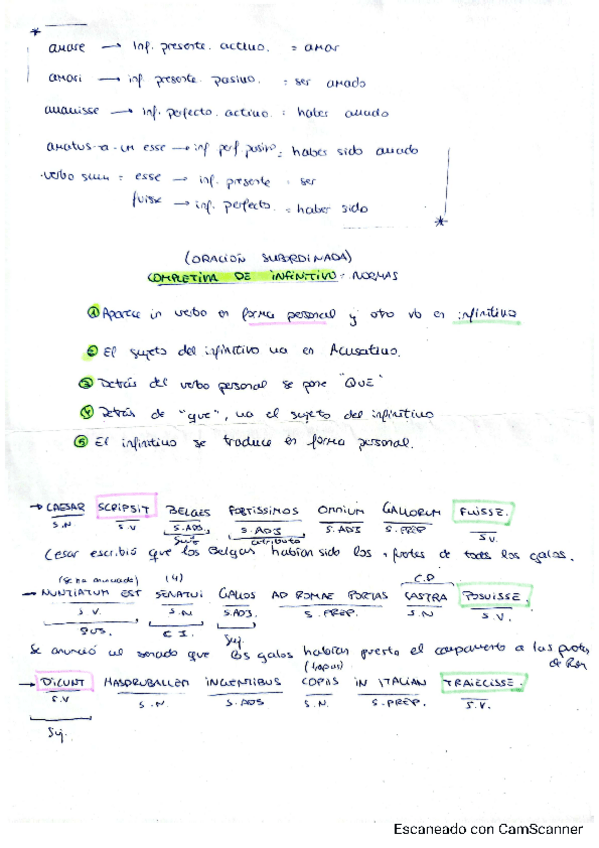 amare → Inf. presente. activo. = amar
amari → inf presente. pasivo. : ser amado
amauisse → inf. perfecto. activo: haber amado
amatus-a-um esse → inf perf. pasivo: haber sido amado
verbo sum = esse → inf. presente : ser
fuisse → inf. perfecto. = haber sido
(ORACIÓN SUBORDINADA)
COMPLETIVA DE INFINITIVO: NORMAS
① Aparece un verbo en forma personal y otro vb en infinitivo
② El sujeto del infinitivo va en Acusativo.
③ Detrás del verbo personal se pone "QUE"
④ Detrás de "que", va el sujeto del infinitivo
⑤ El infinitivo se traduce en forma personal.
→ CAESAR SCRIPSIT BELGAS FORTISSIMOS OMNIUM GALLORUM FUISSE.
S.N. S.V S.ADJ. S.ADJ S.ADJ S.PREP S.V.
Suj atributo
César escribió que los Belgas habían sido los + fuertes de todos los galos.
(se ha anunciado) (4) C.D
→ NUNTIATUM EST SENATUI GALLOS AD ROMAE PORTAS CASTRA POSUISSE.
S.V. S.N S.ADJ. S.PREP. S.N S.V.
SUJ. C I. Suj.
Se anunció al senado que los galos habían puesto el campamento a las puertas
de Rom
(tropas)
→ DICUNT HASDRUBALEM INGENTIBUS COPIIS IN ITALIAM TRAIECISSE.
S.V S.N. S.ADJ S.N. S.PREP. S.V.
Suj.
Escaneado con CamScanner